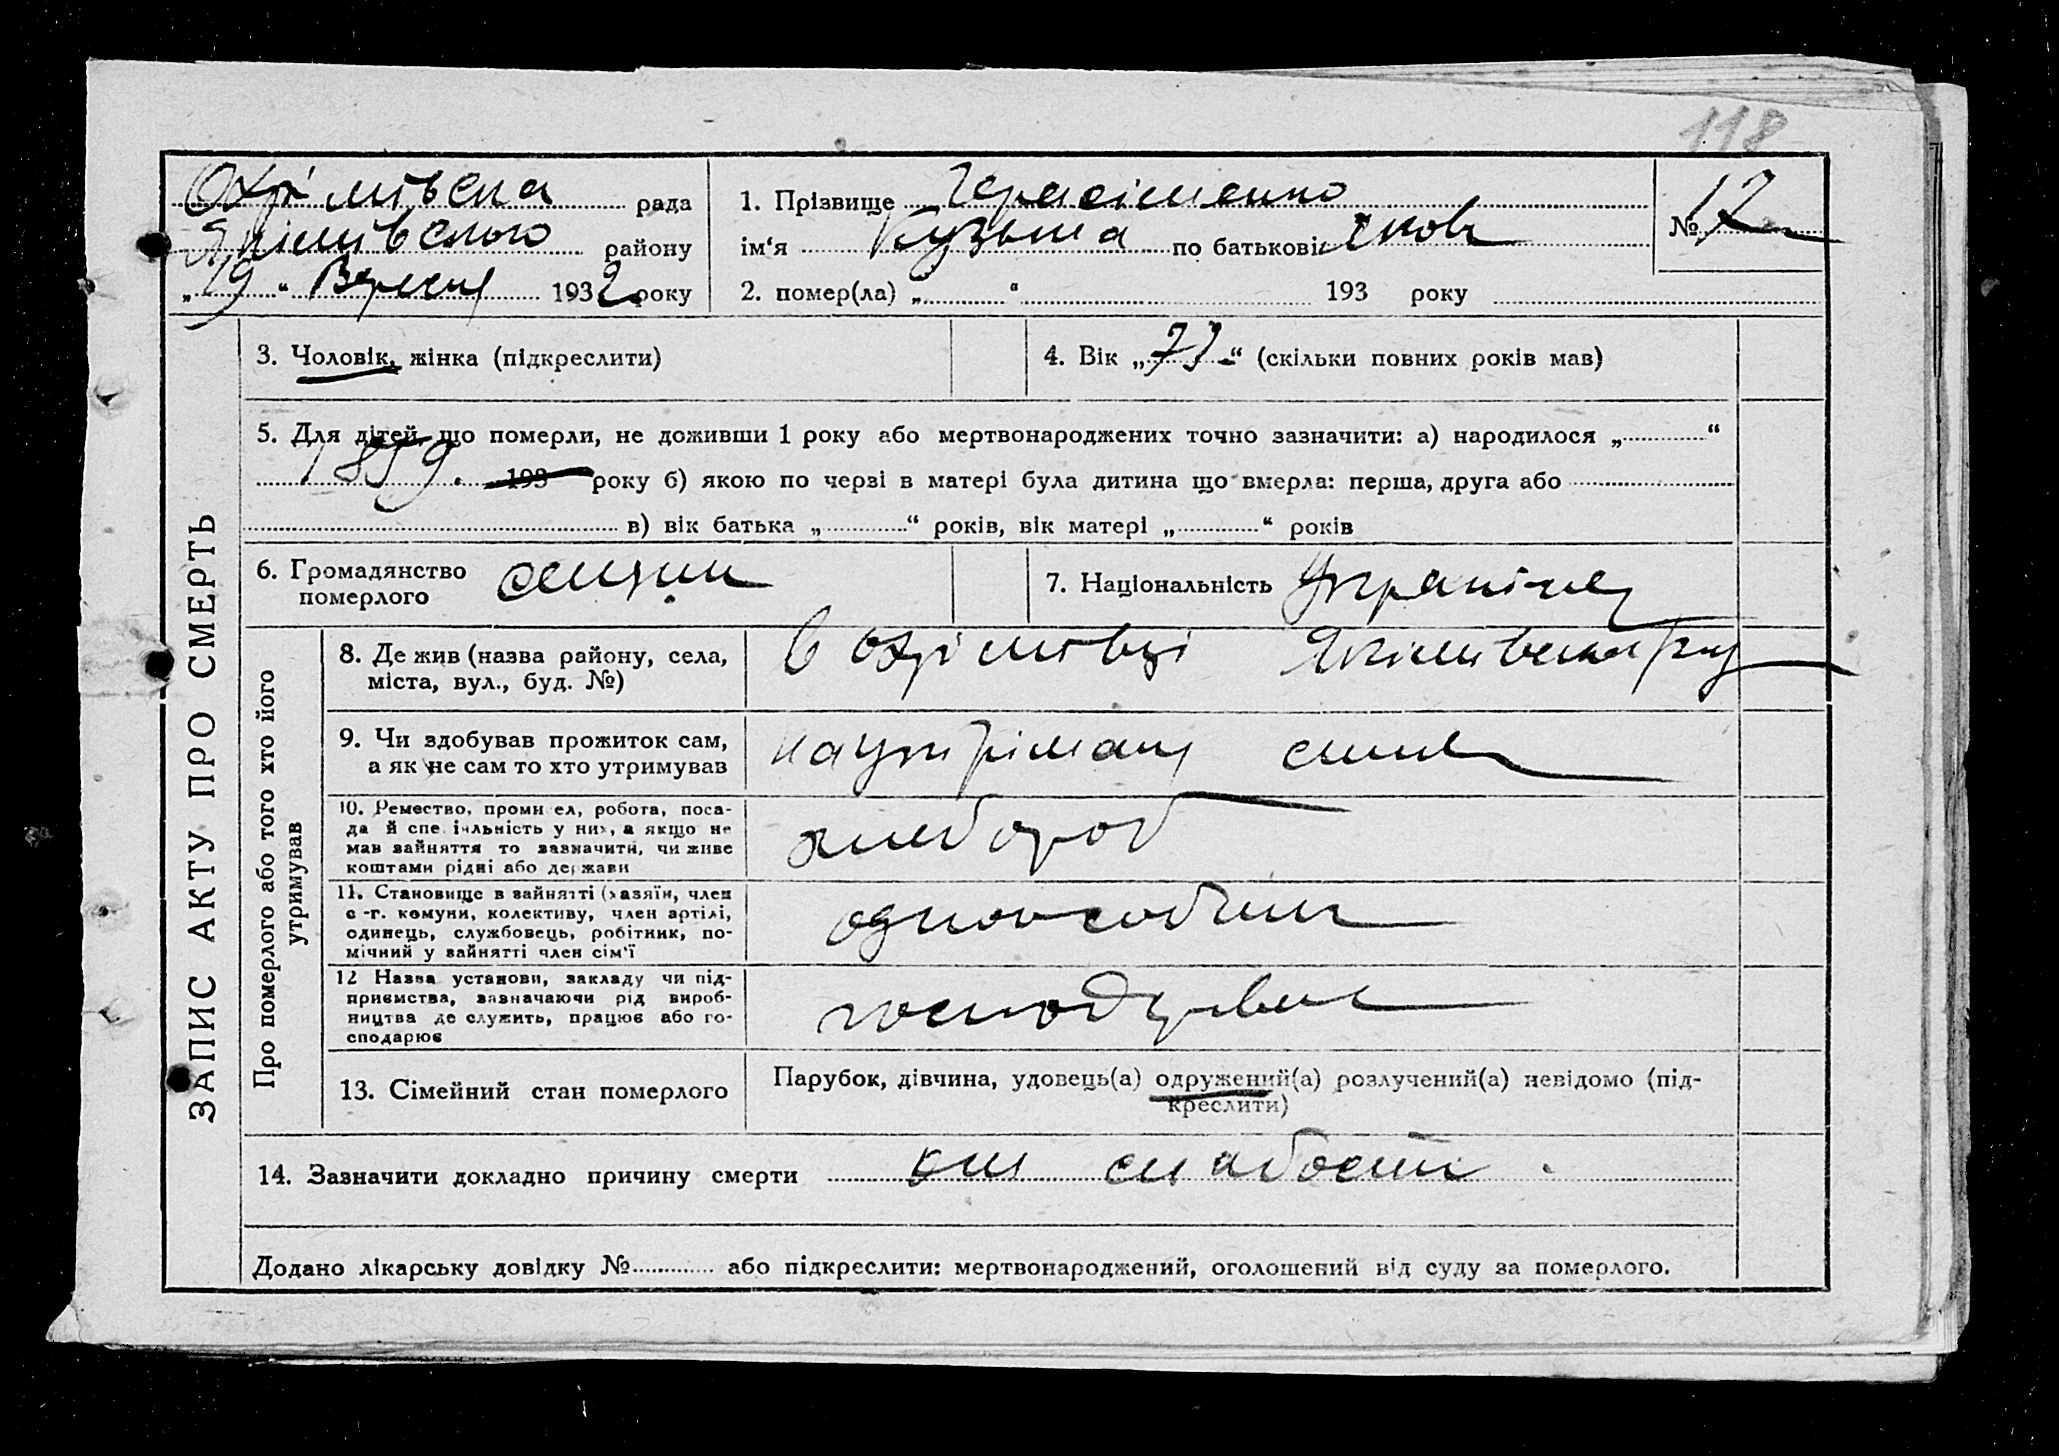 118
Охрімівська рада
Якимівського району
„19“ Вересня 1932 року
1. Прізвище Герасіменко
ім‘я Кузьма по батькові Яков
№ 17
2. помер(ла) „ “ 193 року
3. Чоловік, жінка (підкреслити)
4. Вік „73“ (скільки повних років мав)
5. Для дітей, що померли, не доживши 1 року або мертвонароджених точно зазначити: а) народилося „ “
1859. 193 року б) якою по черзі в матері була дитина що вмерла: перша, друга або
в) вік батька „ “ років, вік матері „ “ років
6. Громадянство
померлого
7. Національність Українец
ЗАПИС АКТУ ПРО СМЕРТЬ
Про померлого або того хто його
утримував
8. Де жив (назва району, села,
міста, вул., буд. №)
в Охрімовці Якимівська р-ну
9. Чи здобував прожиток сам,
а як не сам то хто утримував
на утріманн сина
10. Ремество, промисел, робота, поса-
да й спеціяльність у них, а якщо не
мав зайняття то зазначити, чи живе
коштами рідні або держави
хлебороб
11. Становище в зайнятті (хазяїн, член
с.-г. комуни, колективу, член артілі,
одинець, службовець, робітник, по-
мічний у зайнятті член сім‘ї
одноособник
12 Назва установи, закладу чи під-
приємства, зазначаючи рід вироб-
ництва де служить, працює або го-
сподарює
13. Сімейний стан померлого
Парубок, дівчина, удовець(а) одружений(а) розлучений(а) невідомо (під-
креслити)
14. Зазначити докладно причину смерти слабости.
Додано лікарську довідку № або підкреслити: мертвонароджений, оголошений від суду за померлого.